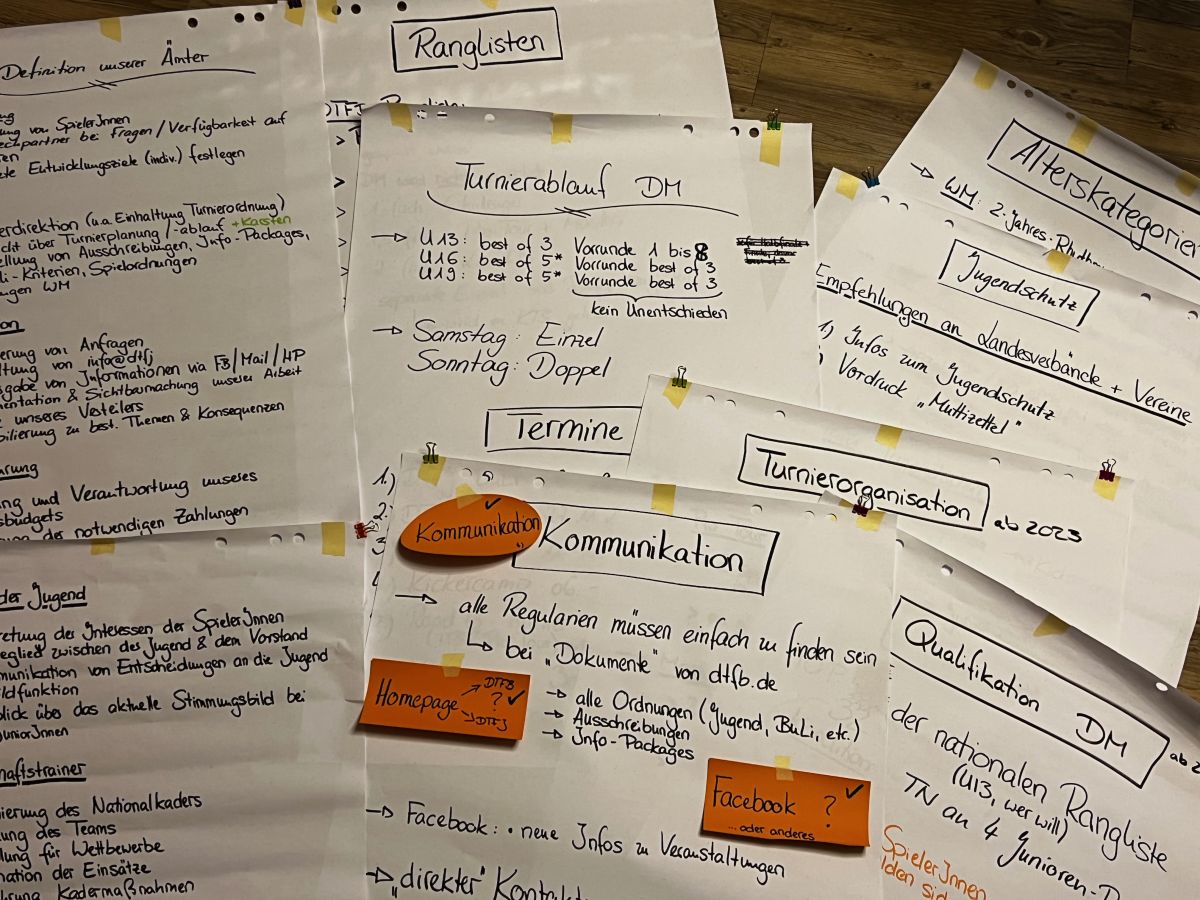 Definition unserer Ämter
ung von SpielerInnen
echpartner bei Fragen / Verfügbarkeit auf
Entwicklungsziele (indiv.) festlegen
erdirektion (u.a. Einhaltung Turnierordnung)
cht über Turnierplanung / -ablauf + Karsten
llung von Ausschreibungen, Info-Packages,
li-Kriterien, Spielordnungen
ngen WM
on
erung von Anfragen
ltung von info@dtfj
sgabe von Informationen via FB / Mail / HP
mentation & Sichtbarmachung unserer Arbeit
unseres Verteilers
bilierung zu best. Themen & Konsequenzen
hrung
ung und Verantwortung unseres
sbudgets
der notwendigen Zahlungen
der Jugend
retung der Interessen der SpielerInnen
eglied zwischen der Jugend & dem Vorstand
munikation von Entscheidungen an die Jugend
ildfunktion
blick über das aktuelle Stimmungsbild bei
JuniorInnen
haftstrainer
ierung des Nationalkaders
lung des Teams
lung für Wettbewerbe
nation der Einsätze
hrung Kadermaßnahmen
Ranglisten
DTFJ
Turnierablauf DM
→ U13: best of 3 Vorrunde 1 bis 8
U16: best of 5* Vorrunde best of 3
U19: best of 5* Vorrunde best of 3
kein Unentschieden
→ Samstag: Einzel
Sonntag: Doppel
Termine
1.)
2.
3
Alterskategorien
→ WM: 2-Jahres-Rhythm
Jugendschutz
Empfehlungen an Landesverbände + Vereine
1) Infos zum Jugendschutz
) Vordruck „Muttizettel"
Turnierorganisation ab 2023
Kommunikation ✓
Kommunikation
→ alle Regularien müssen einfach zu finden sein
↳ bei „Dokumente" von dtfb.de
Homepage → DTFB
? ✓
→ DTFJ
→ alle Ordnungen (Jugend, BuLi, etc.)
→ Ausschreibungen
→ Info-Packages
Facebook ? ✓
... oder anderes
→ Facebook: • neue Infos zu Veranstaltungen
→ „direkter" Kontakt
Qualifikation DM
ab 2
der nationalen Rangliste
(U13, wer will)
TN an 4 Junioren-D
SpielerInnen
lden sic